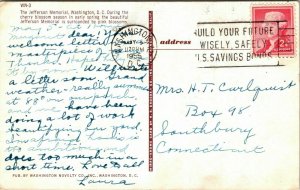 WN-3
The Jefferson Memorial, Washington, D.C. During the
cherry blossom season in early spring the beautiful
Jefferson Memorial is surrounded by pink blossoms.
WASHINGTON
1230PM
1955
D.C.
BUILD YOUR FUTURE
WISELY, SAFELY
U.S. SAVINGS BONDS
2¢
address
May
dear, your
welcome letter
Will write
a little soon. Grand
weather, really summer
at 88°
have been
doing a lot of work
beautifying our yard,
does too much in a
short time, Love to all
Laura
Mrs. H. T. Carlquist
Box 98
Southbury
Connecticut
PUB. BY WASHINGTON NOVELTY CO., INC., WASHINGTON, D.C.